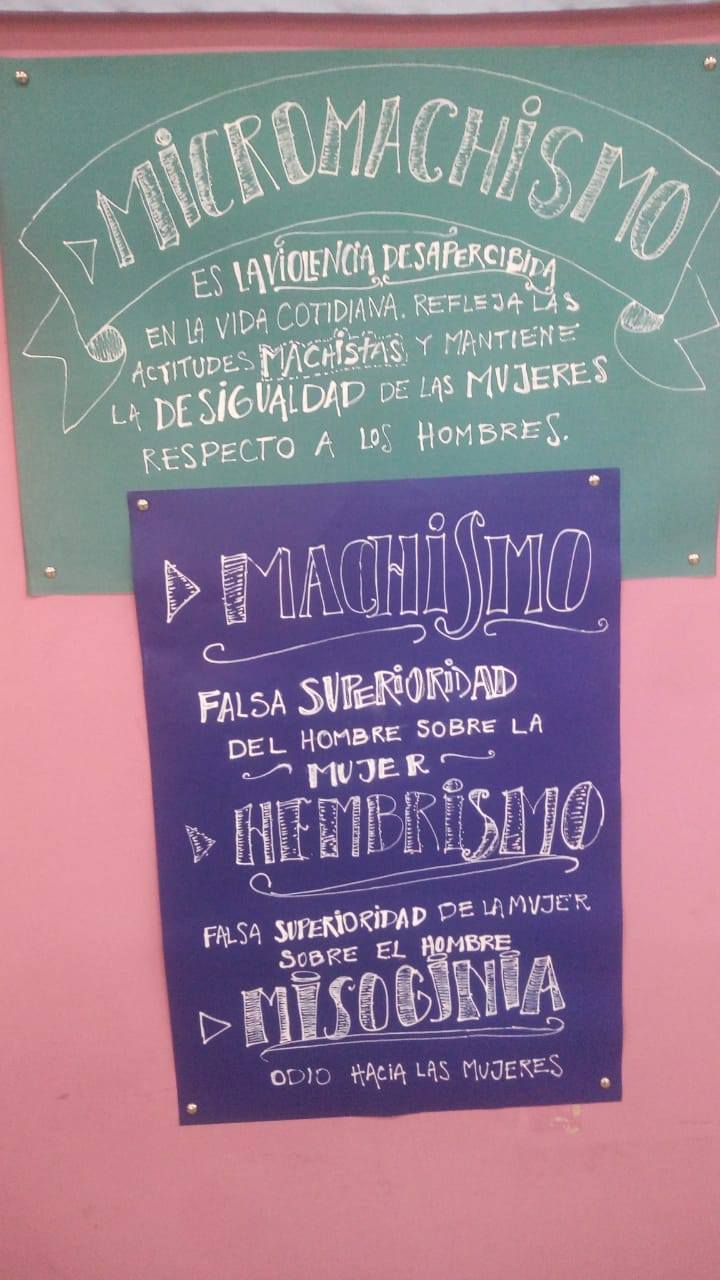 MICROMACHISMO
ES LA VIOLENCIA DESAPERCIBIDA
EN LA VIDA COTIDIANA. REFLEJA LAS
ACTITUDES MACHISTAS Y MANTIENE
LA DESIGUALDAD DE LAS MUJERES
RESPECTO A LOS HOMBRES.
MACHISMO
FALSA SUPERIORIDAD
DEL HOMBRE SOBRE LA
MUJER
HEMBRISMO
FALSA SUPERIORIDAD DE LA MUJER
SOBRE EL HOMBRE
MISOGINIA
ODIO HACIA LAS MUJERES